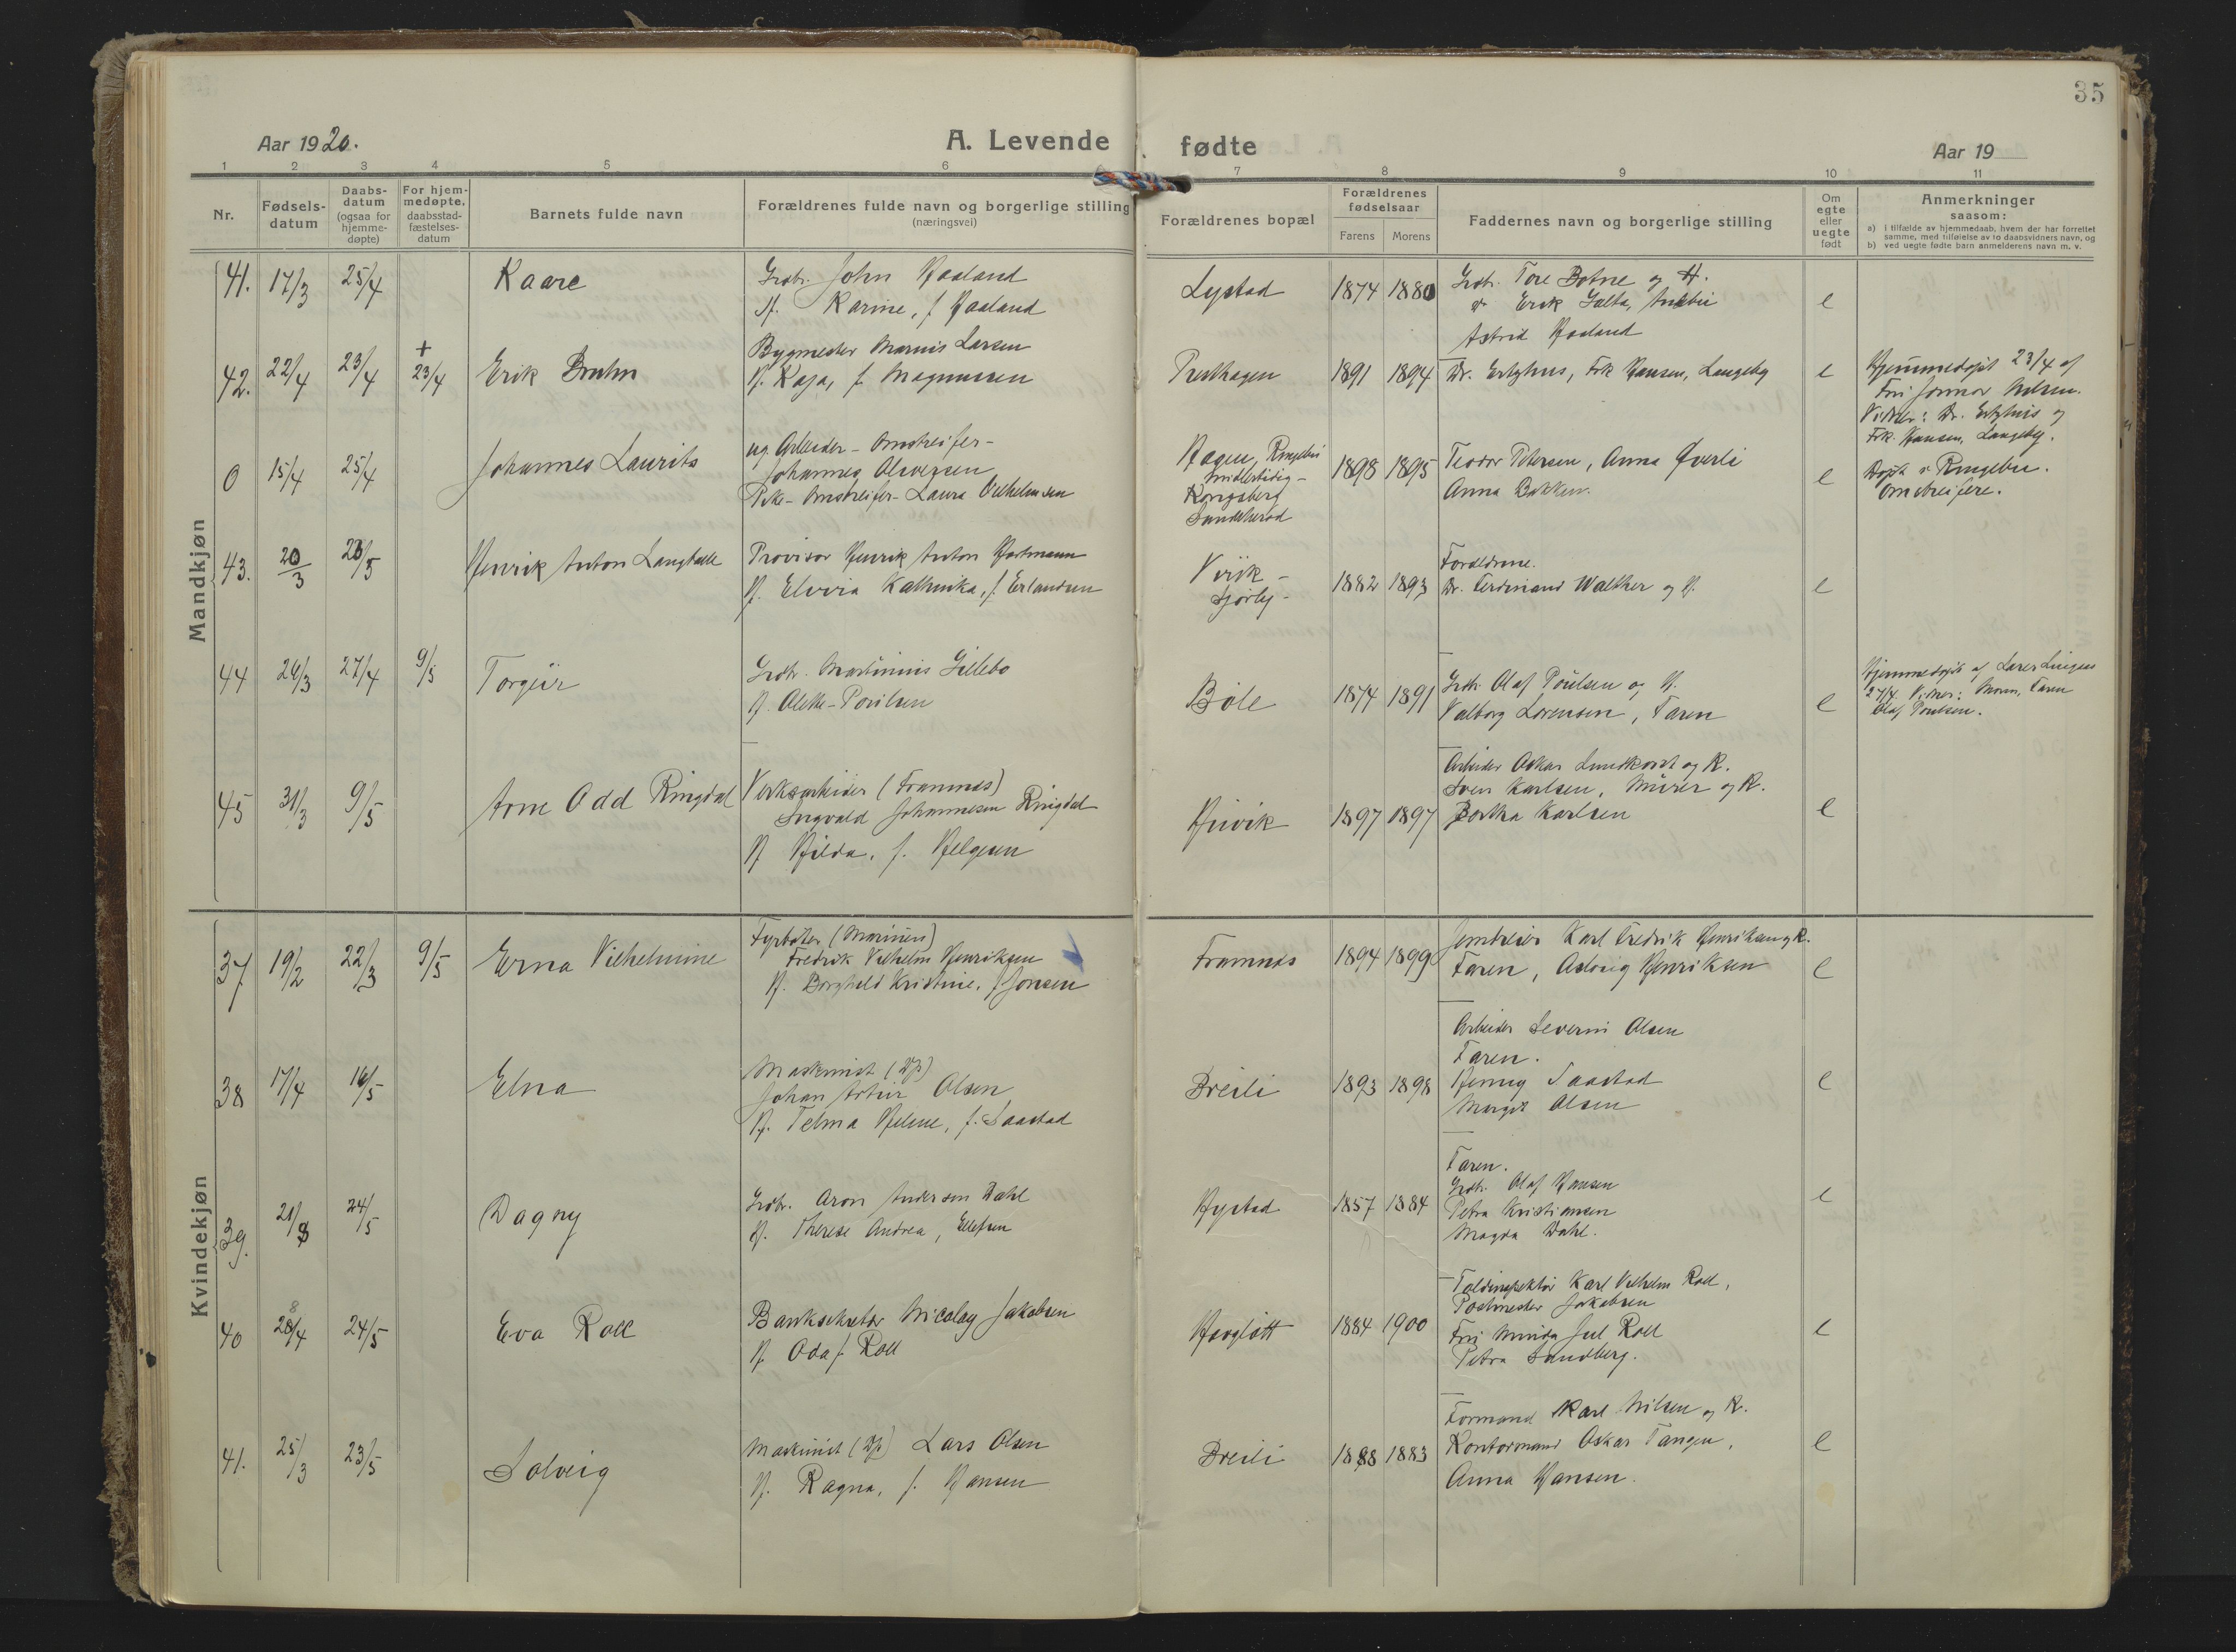 35
Aar 1920.
A. Levende fødte
Aar 19
1 2 3 4 5 6 7 8 9 10 11
Nr.
Fødsels-
datum
Daabs-
datum
(ogsaa for
hjemme-
døpte)
For hjem-
medøpte,
daabsstad-
fæstelses-
datum
Barnets fulde navn
Forældrenes fulde navn og borgerlige stilling
(næringsvei)
Forældrenes bopæl
Forældrenes
fødselsaar
Farens Morens
Faddernes navn og borgerlige stilling
Om
egte
eller
uegte
født
Anmerkninger
saasom:
a) i tilfælde av hjemmedaab, hvem der har forrettet
samme, med tilføielse av to daabsvidners navn, og
b) ved uegte fødte barn anmelderens navn m. v.
Mandkjøn
41. 17/3 25/4 Kaare
Grdbr. John Haaland
H. Karine, f. Haaland
Lystad 1874 1880
Grdbr. Tore Botne og H.
Erik Galta,
Astrid Haaland
e
42. 22/4 23/4 + 23/4 Erik Bruhn
Bygmester Larsen
H. Kaja, f. Magnussen
1891 1894
Dr. Frk Hansen, Langeby
e
Hjemmedøpt 23/4 af
Nilsen.
Dr. og
Frk. Hansen, Langeby.
0 15/4 25/4 Johannes Laurits
ug. Arbeider - Omstreifer -
Johannes
Pike - Omstreifer - Laura Vilhelmsen
Hagen, Ringebu
midlertidig -
Kongsberg
Sandsherad
1898 1895
Teodor Petersen, Anna Øverli
Anna Bakken.
e
Døpt i Ringebu.
Omstreifere.
43. 20/3 5 Henrik Anton
Provisor Henrik Anton Hartmann
H. Kathinka, f. Erlandsen
Virik -
1882 1893
Forældrene.
Dr. Ferdinand Walther og H.
e
44 26/3 27/4 9/5 Torgeir
Grdbr. Martinius Gillebo
H. Poulsen
Bøle 1874 1891
Grdbr. Olaf Poulsen og H.
Valborg Lorensen, Faren
e
Hjemmedøpt af Lærer
27/4. Vidner: Moren, Faren
Olaf Poulsen.
45 31/3 9/5 Arne Odd Ringdal
Verksarbeider (Framnæs)
Ingvald Johannesen Ringdal
H Hilda, f. Helgesen
1897 1897
Arbeider Oskar og K.
Sven Karlsen, Murer og K.
Bertha Karlsen
e
Kvindekjøn
37 19/2 22/3 9/5 Erna Vilhelmine
Fyrbøter (Marinen)
Fredrik Vilhelm Henriksen
H. Borghild Kristine, f. Jonsen
Framnæs 1894 1899
Karl Fredrik Henriksen og K.
Faren, Henriksen
e
38 17/4 16/5 Elna
Maskinist
Johan Artur Olsen
H. Telma Helene, f. Saastad
Breili 1893 1898
Arbeider Severin Olsen
Faren.
Henny Saastad
Margit Olsen
e
39. 21/3 24/5 Dagny
Grdbr. Aron Andersen Dahl
H. Therese Andrea, Ellefsen
Hystad 1857 1884
Faren.
Grdbr. Olaf Hansen
Petra Kristiansen
Magda Dahl.
e
40 28/4 8 24/5 Eva Roll
Banksekretær Nicolay Jakobsen
H. Oda f. Roll
1884 1900
Toldinspektør Karl Vilhelm Roll,
Postmester Jakobsen
Juel Roll
Petra Sandberg.
e
41. 25/3 23/5 Solveig
Maskinist Lars Olsen
H. Ragna, f. Hansen
Breili 1888 1883
Formand Karl Nilsen og K.
Kontormand Oskar Tangen,
Anna Hansen.
e